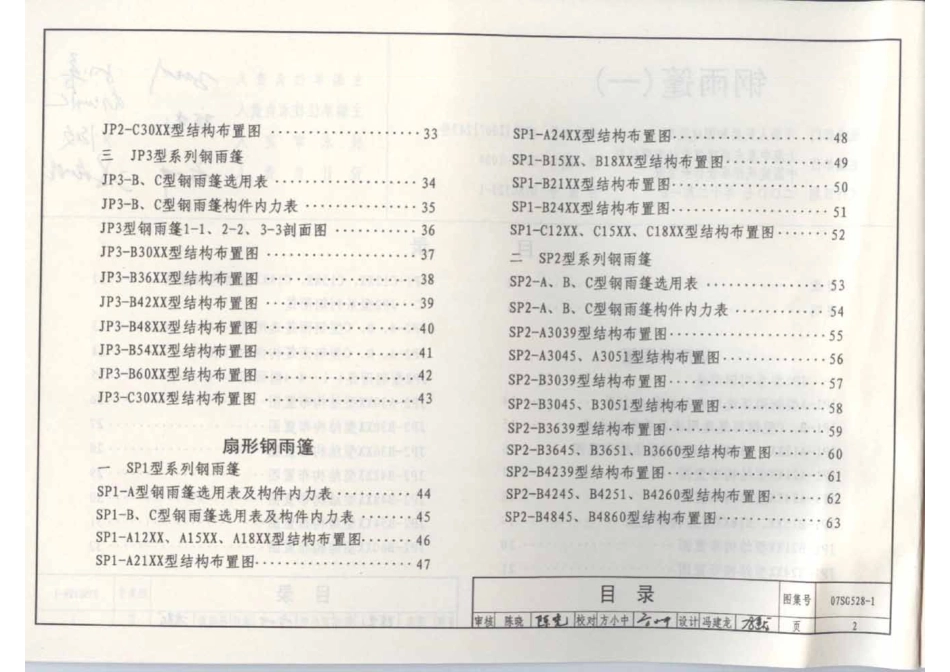 JP2-C30XX型结构布置图 ················ 33
三 JP3型系列钢雨篷
JP3-B、C型钢雨篷选用表 ················ 34
JP3-B、C型钢雨篷构件内力表 ············· 35
JP3型钢雨篷1-1、2-2、3-3剖面图 ·········· 36
JP3-B30XX型结构布置图 ················ 37
JP3-B36XX型结构布置图 ················ 38
JP3-B42XX型结构布置图 ················ 39
JP3-B48XX型结构布置图 ················ 40
JP3-B54XX型结构布置图 ················ 41
JP3-B60XX型结构布置图 ················ 42
JP3-C30XX型结构布置图 ················ 43
扇形钢雨篷
一 SP1型系列钢雨篷
SP1-A型钢雨篷选用表及构件内力表 ·········· 44
SP1-B、C型钢雨篷选用表及构件内力表 ······· 45
SP1-A12XX、A15XX、A18XX型结构布置图 ······ 46
SP1-A21XX型结构布置图 ················ 47
SP1-A24XX型结构布置图 ················ 48
SP1-B15XX、B18XX型结构布置图 ··········· 49
SP1-B21XX型结构布置图 ················ 50
SP1-B24XX型结构布置图 ················ 51
SP1-C12XX、C15XX、C18XX型结构布置图 ······ 52
二 SP2型系列钢雨篷
SP2-A、B、C型钢雨篷选用表 ············· 53
SP2-A、B、C型钢雨篷构件内力表 ·········· 54
SP2-A3039型结构布置图 ················ 55
SP2-A3045、A3051型结构布置图 ··········· 56
SP2-B3039型结构布置图 ················ 57
SP2-B3045、B3051型结构布置图 ··········· 58
SP2-B3639型结构布置图 ················ 59
SP2-B3645、B3651、B3660型结构布置图 ······ 60
SP2-B4239型结构布置图 ················ 61
SP2-B4245、B4251、B4260型结构布置图 ······ 62
SP2-B4845、B4860型结构布置图 ··········· 63
目 录 图集号 07SG528-1
审核 陈晓 校对 方小中 设计 冯建龙 页 2